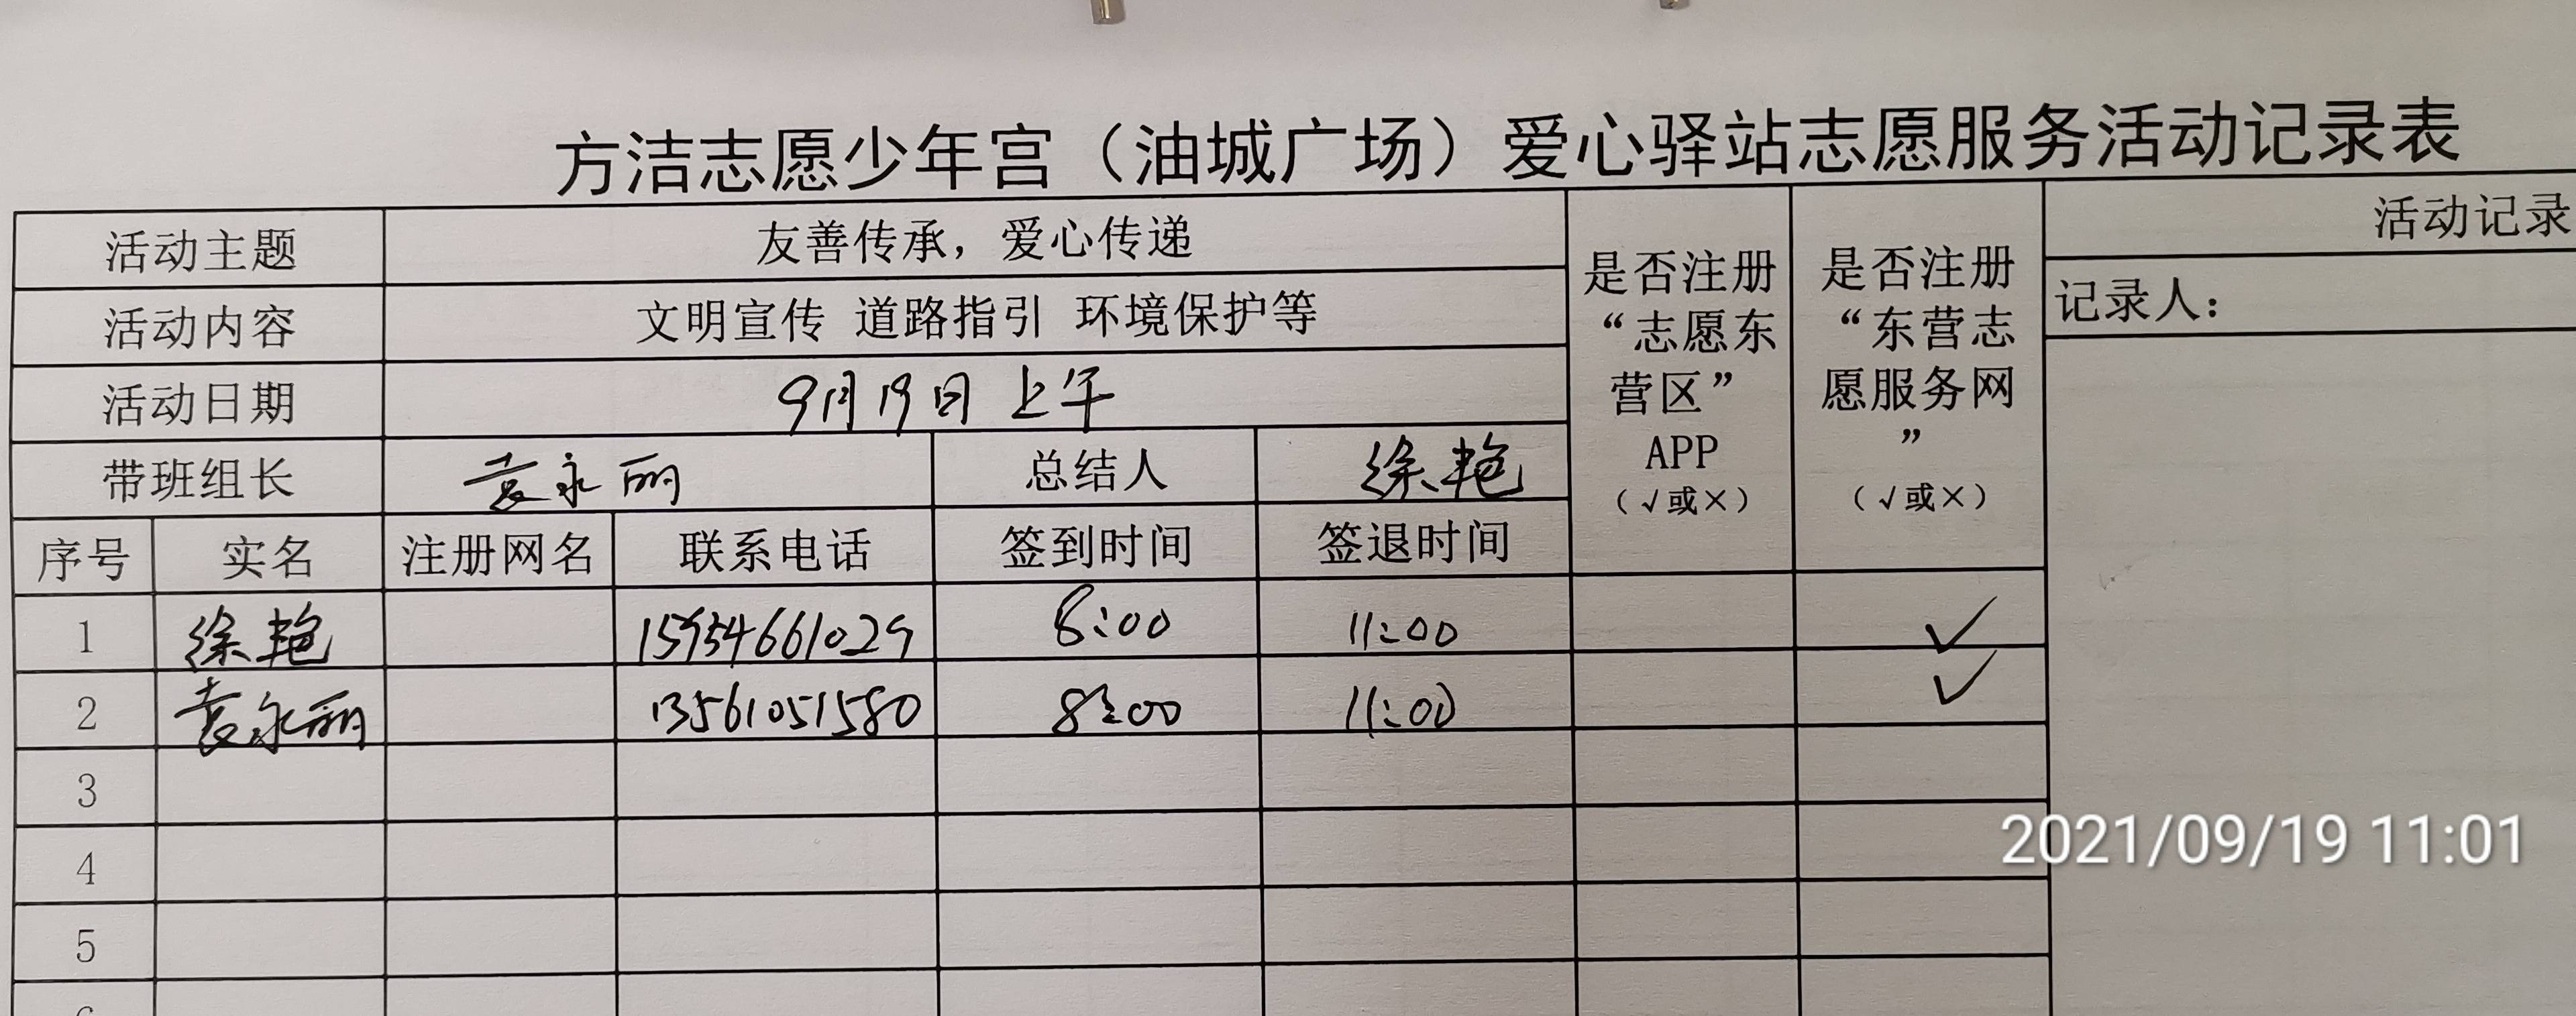 方洁志愿少年宫（油城广场）爱心驿站志愿服务活动记录表
活动主题 友善传承，爱心传递 是否注册“志愿东营区”APP（√或×） 是否注册“东营志愿服务网”（√或×） 活动记录
活动内容 文明宣传 道路指引 环境保护等 记录人：
活动日期 9月19日上午
带班组长 袁永丽 总结人 徐艳
序号 实名 注册网名 联系电话 签到时间 签退时间
1 徐艳 15954661029 8:00 11:00 ✓
2 袁永丽 13561051580 8:00 11:00 ✓
3
4
5
2021/09/19 11:01